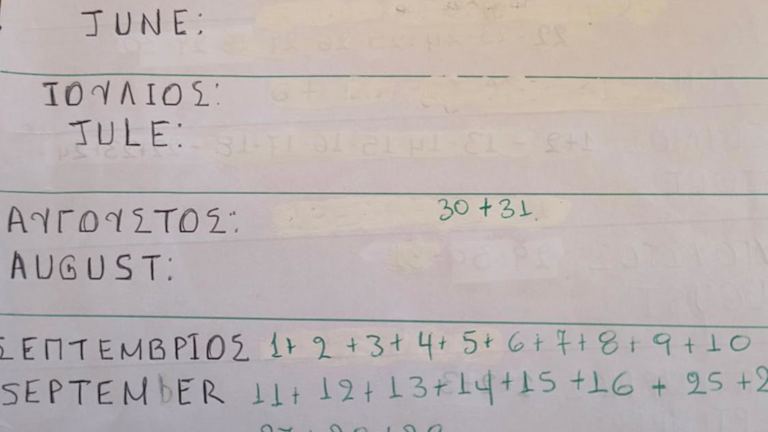 JUNE:
ΙΟΥΛΙΟΣ:
JULE:
ΑΥΓΟΥΣΤΟΣ: 30 + 31.
AUGUST:
ΣΕΠΤΕΜΒΡΙΟΣ 1+ 2 +3+ 4+ 5+ 6+7+8+ 9+10
SEPTEMbER 11+ 12+13+14+15 +16 + 25 +2